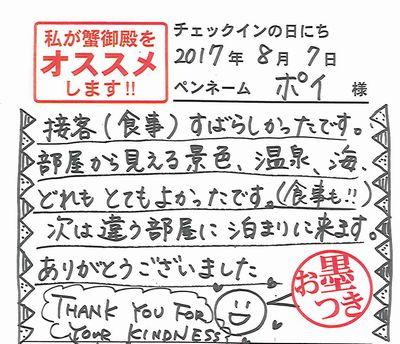 私が蟹御殿を
オススメ
します!!
チェックインの日にち
2017年 8月 7日
ペンネーム ポイ 様
接客(食事)すばらしかったです。
部屋から見える景色、温泉、海、
どれも とてもよかったです。(食事も!!)
次は違う部屋に 泊まりに来ます。
ありがとうございました
THANK YOU FOR
YOUR KINDNESS
お墨つき